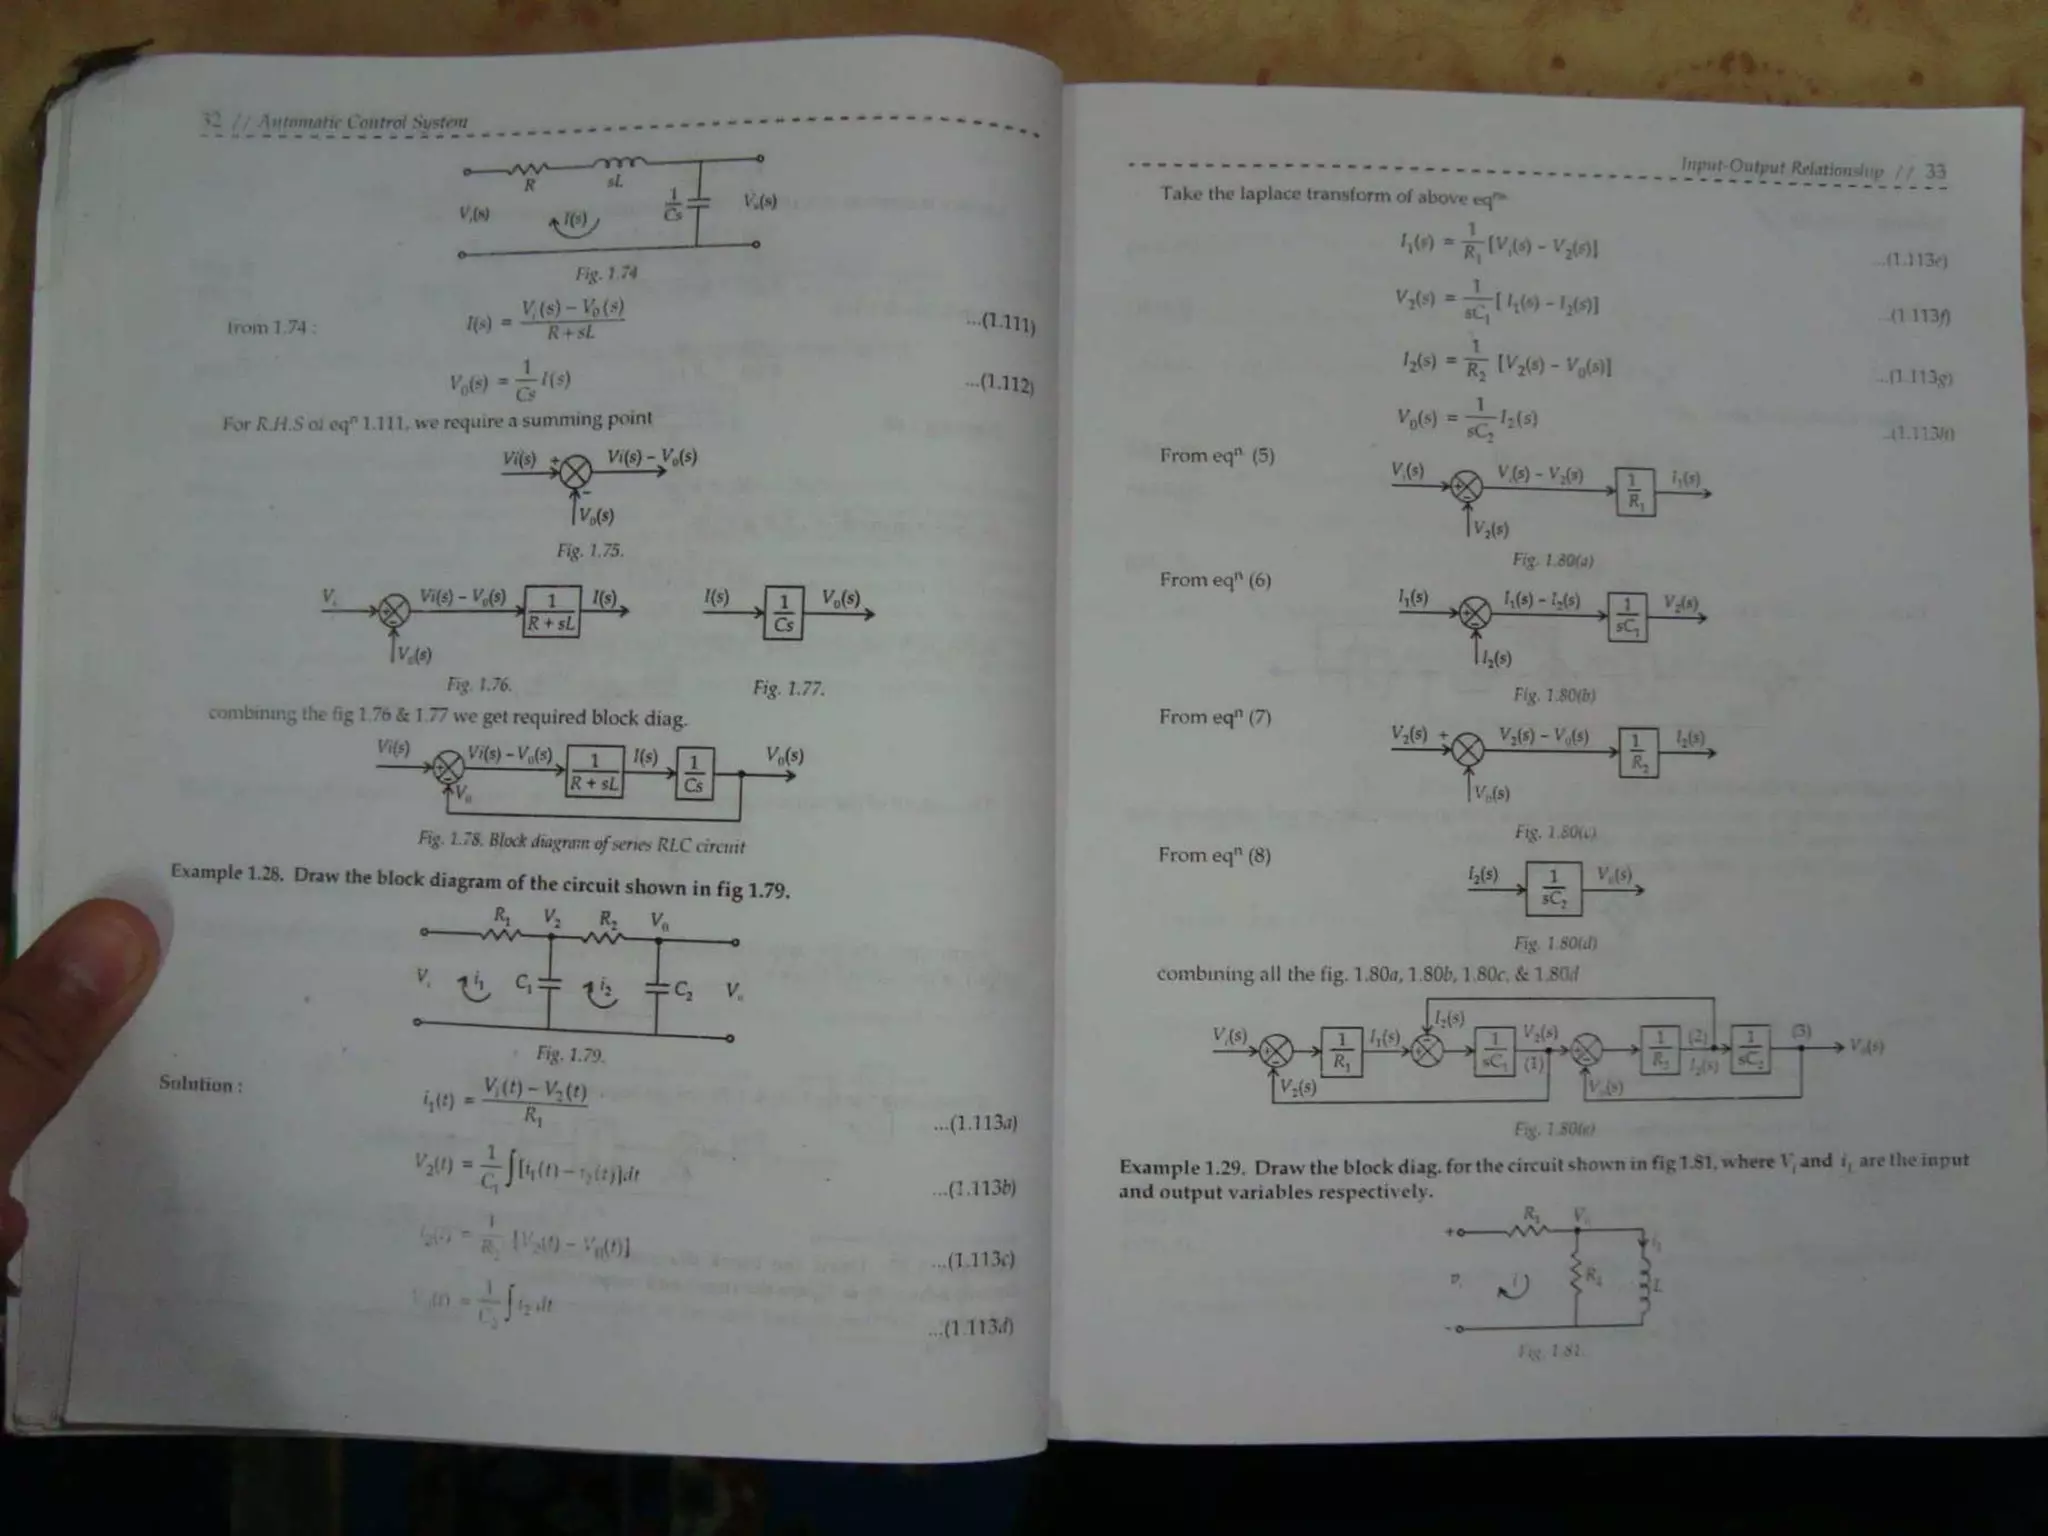 32 // Automatic Control System
R
sL
1/Cs
Vi(s)
I(s)
Vo(s)
Fig. 1.74
from 1.74 :
I(s) = (Vi(s) – V0(s)) / (R + sL) ...(1.111)
V0(s) = 1/Cs I(s) ...(1.112)
For R.H.S of eqn 1.111, we require a summing point
Vi(s) + Vi(s) – V0(s)
–
V0(s)
Fig. 1.75.
Vi + Vi(s) – V0(s) 1/(R + sL) I(s)
I(s) 1/Cs V0(s)
– V0(s)
Fig. 1.76.
Fig. 1.77.
combining the fig 1.76 & 1.77 we get required block diag.
Vi(s) + Vi(s) – V0(s) 1/(R + sL) I(s) 1/Cs V0(s)
– V0
Fig. 1.78. Block diagram of series RLC circuit
Example 1.28. Draw the block diagram of the circuit shown in fig 1.79.
R1 V2 R2 V0
Vi i1 C1 i2 C2 Vo
Fig. 1.79.
Solution :
i1(t) = (Vi(t) – V2(t)) / R1 ...(1.113a)
V2(t) = 1/C1 ∫[i1(t) – i2(t)]dt ...(1.113b)
i2(t) = 1/R2 [V2(t) – V0(t)] ...(1.113c)
= 1/C2 ∫ i2 dt ...(1.113d)
Input-Output Relationship // 33
Take the laplace transform of above eqns
I1(s) = 1/R1 [Vi(s) – V2(s)] ...(1.113e)
V2(s) = 1/sC1 [ I1(s) – I2(s)] ...(1.113f)
I2(s) = 1/R2 [V2(s) – V0(s)] ...(1.113g)
V0(s) = 1/sC2 I2(s) ...(1.113h)
From eqn (5)
Vi(s) + Vi(s) – V2(s) 1/R1 i1(s)
– V2(s)
Fig. 1.80(a)
From eqn (6)
I1(s) + I1(s) – I2(s) 1/sC1 V2(s)
– I2(s)
Fig. 1.80(b)
From eqn (7)
V2(s) + V2(s) – V0(s) 1/R2 I2(s)
– V0(s)
Fig. 1.80(c)
From eqn (8)
I2(s) 1/sC2 V0(s)
Fig. 1.80(d)
combining all the fig. 1.80a, 1.80b, 1.80c, & 1.80d
I2(s)
Vi(s) + 1/R1 I1(s) + – 1/sC1 V2(s) (1) + 1/R2 (2) I2(s) 1/sC2 (3) V0(s)
– V2(s)
– V0(s)
Fig. 1.80(e)
Example 1.29. Draw the block diag. for the circuit shown in fig 1.81, where Vi and iL are the input
and output variables respectively.
R1
+
vi i R2 L
–
Fig. 1.81.